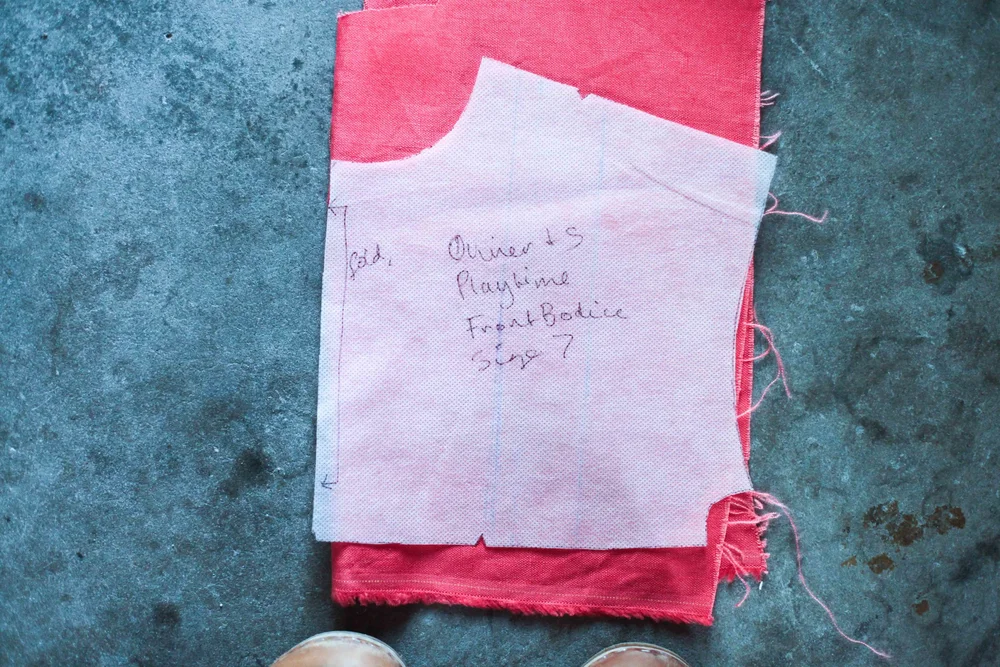 fold.
Oliver + S
Playtime
Front Bodice
Size 7